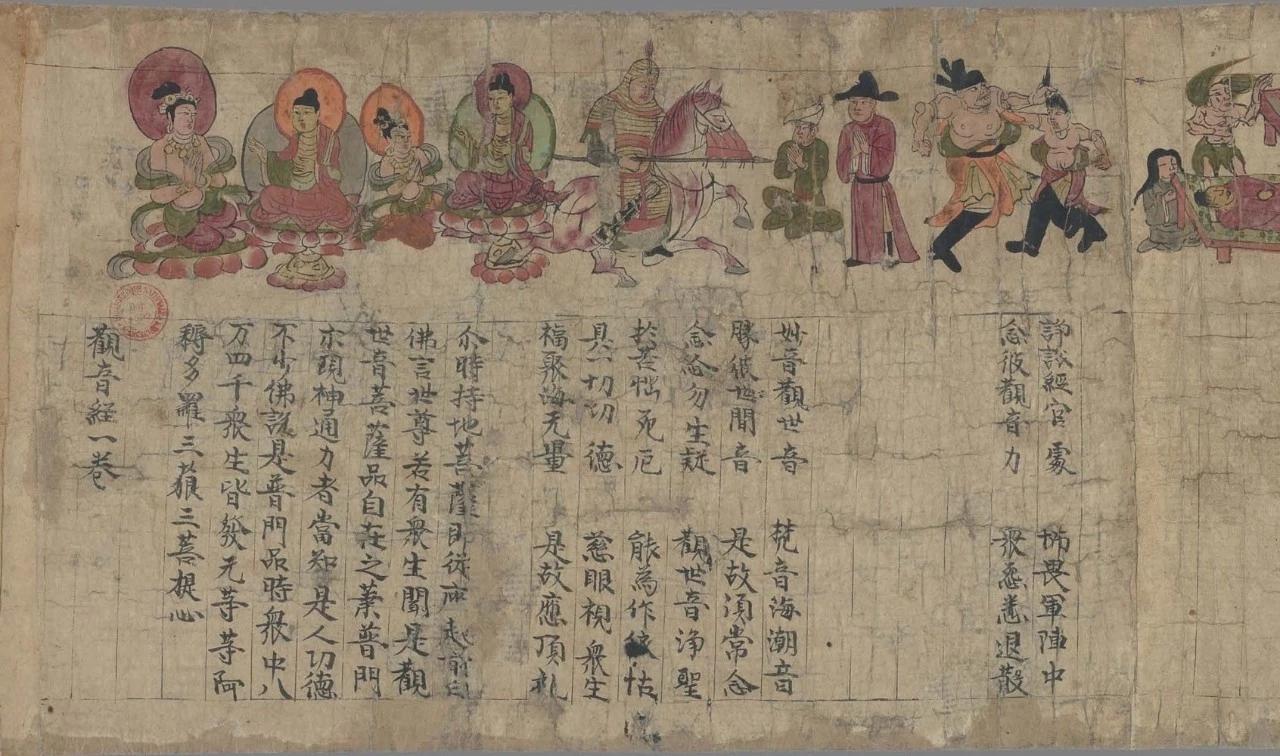 諍訟經官處 怖畏軍陣中
念彼觀音力 衆怨悉退散
妙音觀世音 梵音海潮音
勝彼世間音 是故須常念
念念勿生疑 觀世音淨聖
於苦惱死厄 能為作怙
具一切功德 慈眼視衆生
福聚海无量 是故應頂礼
尒時持地菩薩即從座起前白
佛言世尊若有衆生聞是觀
世音菩薩品自在之業普門
示現神通力者當知是人功德
不少佛說是普門品時衆中八
万四千衆生皆發无等等阿
耨多羅三藐三菩提心
觀音經一卷